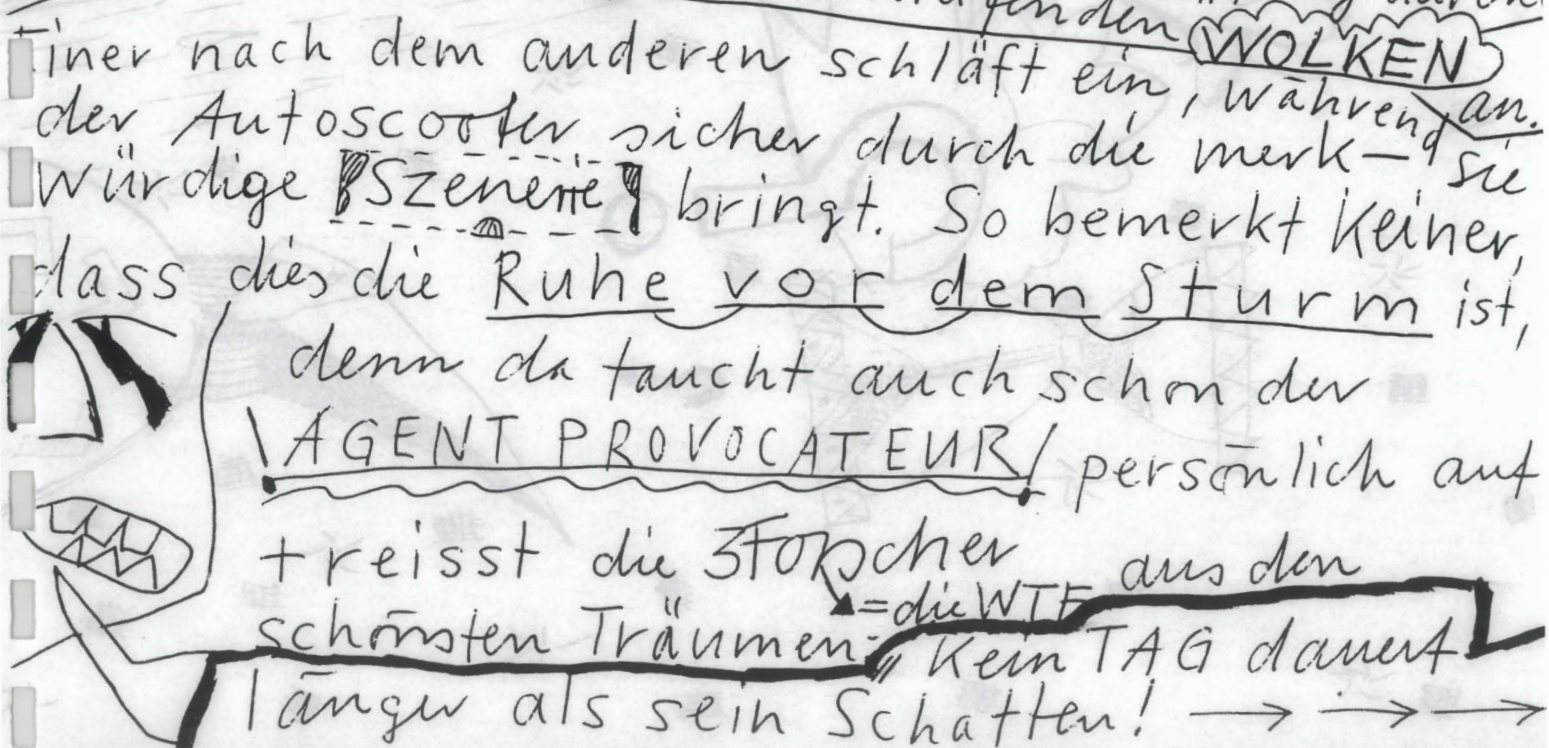 fenden
WOLKEN
an.
Einer nach dem anderen schläft ein, während sie
der Autoscooter sicher durch die merk-
würdige Szenerie bringt. So bemerkt Keiner,
dass dies die Ruhe vor dem Sturm ist,
denn da taucht auch schon der
AGENT PROVOCATEUR persönlich auf
+ reisst die 3 Forscher aus den
=die WTF
schönsten Träumen: „Kein TAG dauert
länger als sein Schatten! → → →